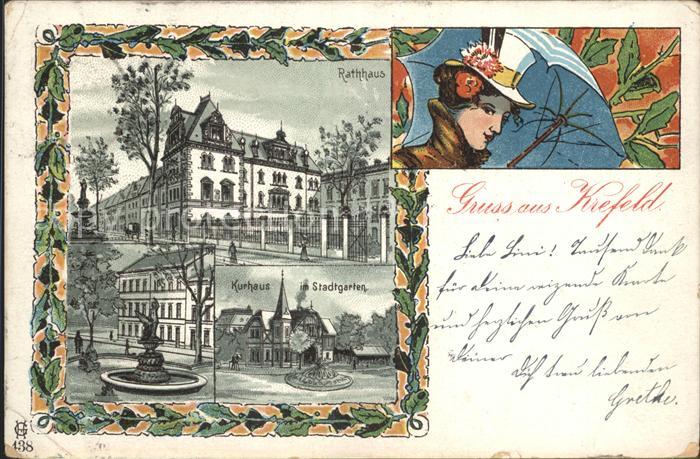 Rathhaus
Gruss aus Krefeld.
Kurhaus im Stadtgarten.
Liebe Lini! Tausend Dank
für deine reizende Karte
und herzlichen Gruß von
Deiner
Dich treu liebenden
Grethe.
438